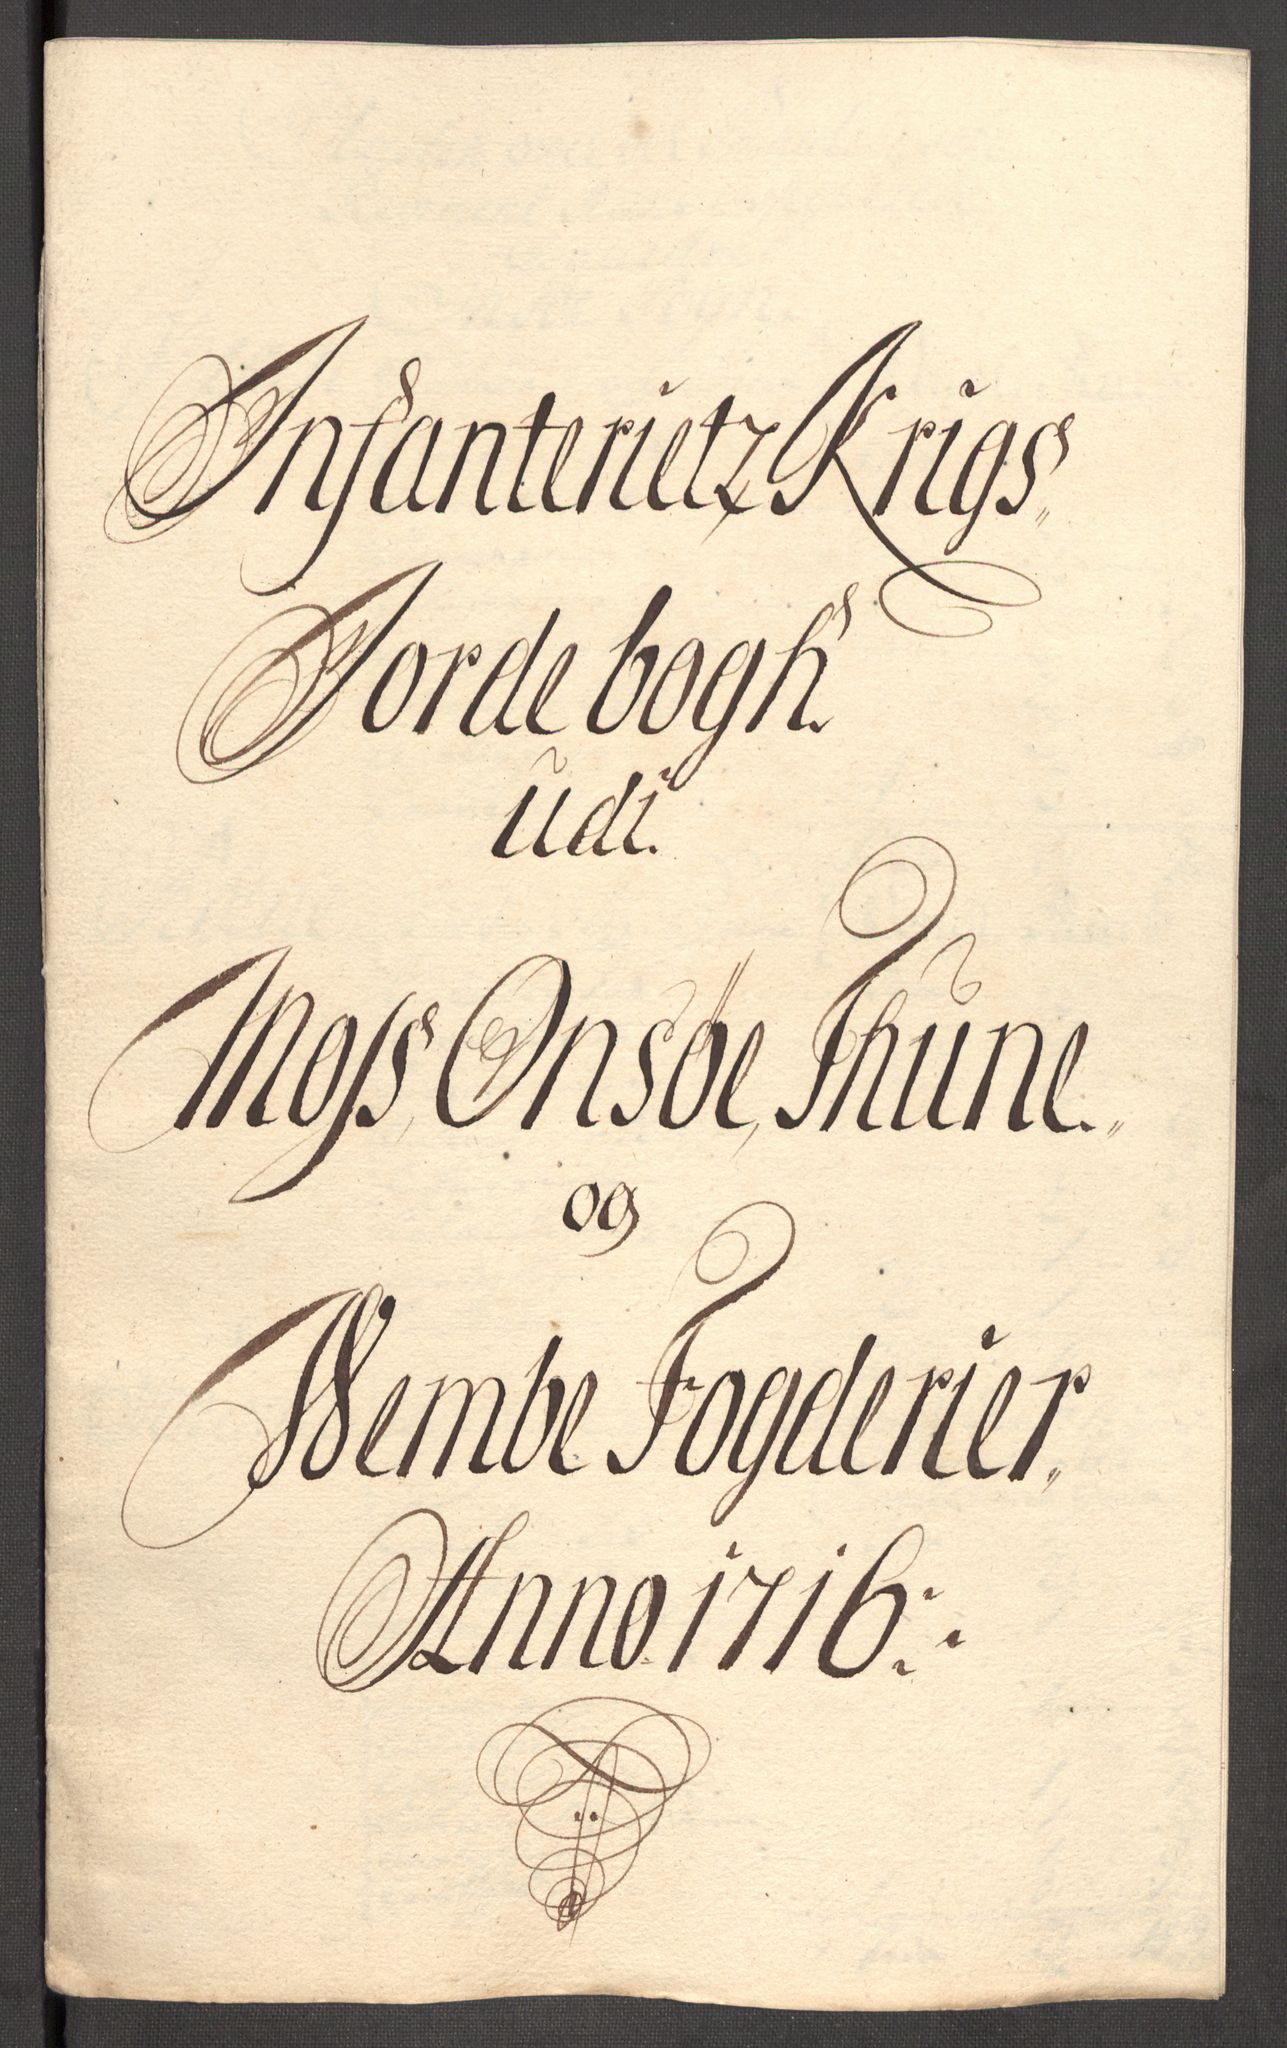 Infanterietz Krigs„
Jordebogh.
udi.
Moss, Onsøe, Thune„
og
Wembe Fogderier„
Anno 1716: